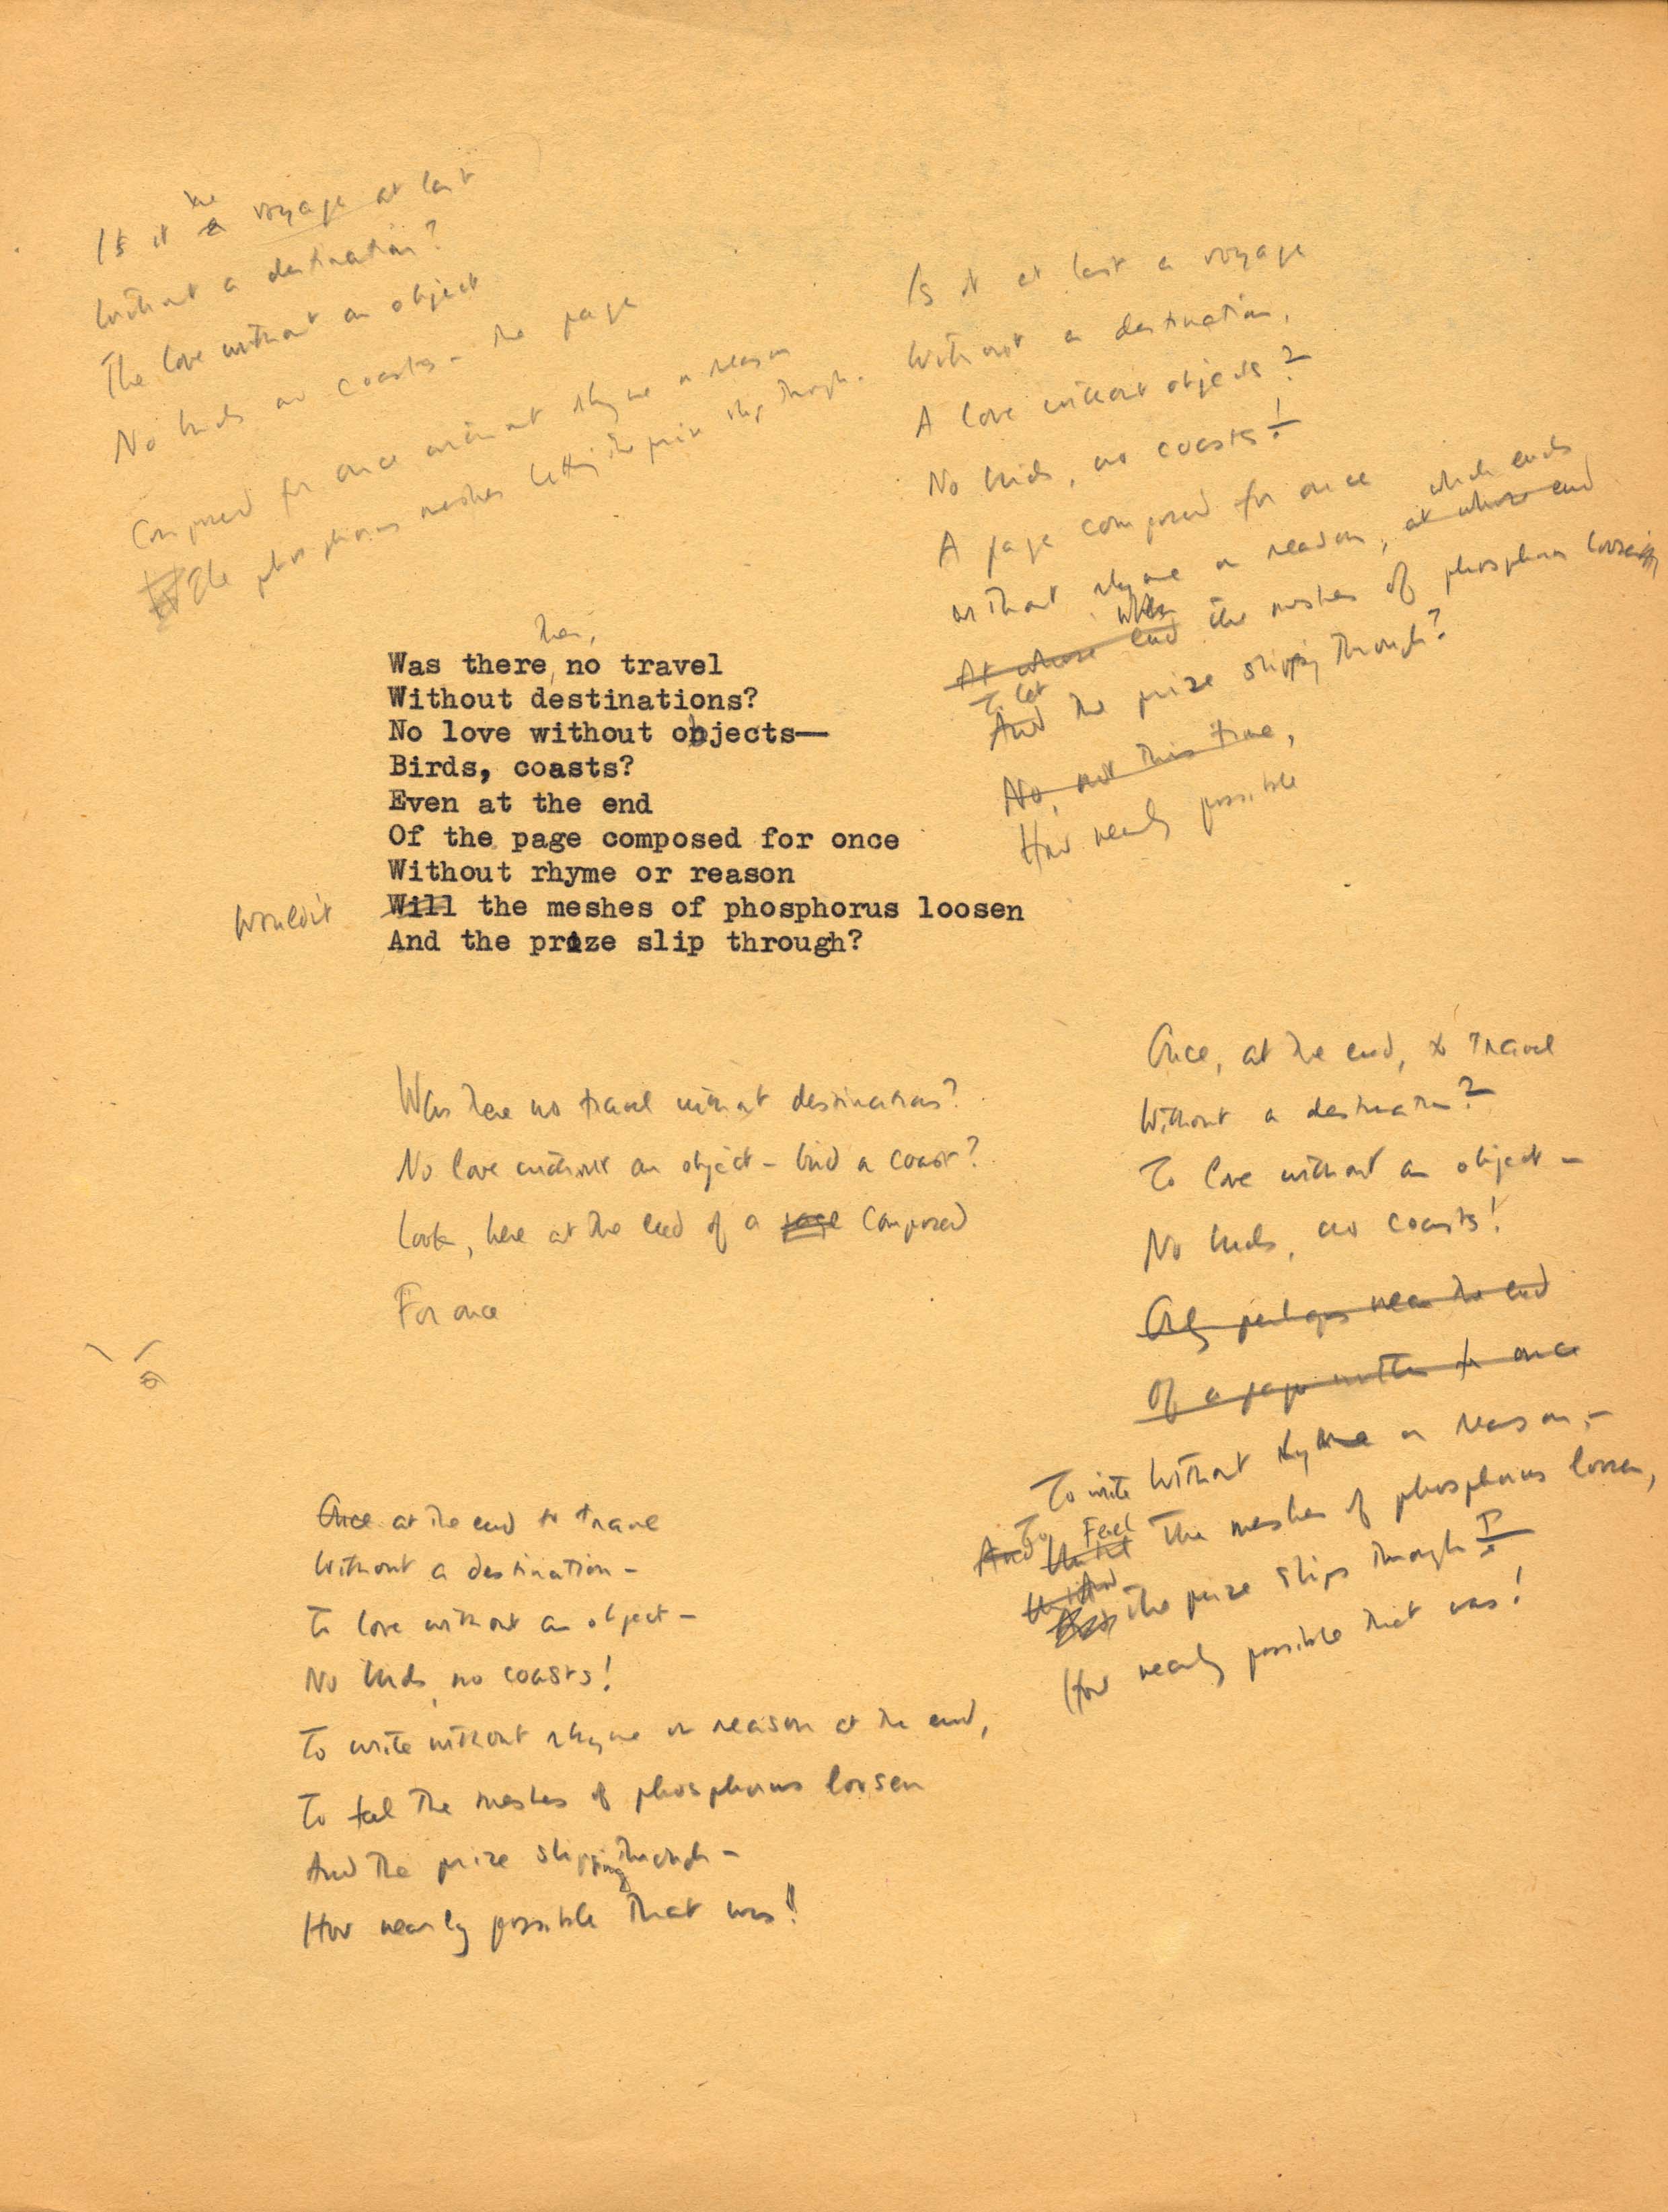 Is it a the voyage at last
Without a destination?
The love without an object
No birds no coasts – the page
Composed for once without rhyme or reason
The phosphorus meshes letting the prize slip through.
Is it at last a voyage
Without a destination,
A love without objects?
No birds, no coasts!
A page composed for once
which ends
without rhyme or reason, at whose end
When
At whose end the meshes of phosphorus loosen
To let
And the prize slipping through?
No, not this time,
How nearly possible
then,
Was there no travel
Without destinations?
No love without objects—
Birds, coasts?
Even at the end
Of the page composed for once
Without rhyme or reason
Wouldn't Will the meshes of phosphorus loosen
And the prize slip through?
Was there no travel without destinations?
No love without an object – bird or coast?
Look, here at the end of a page composed
For once
Once, at the end, to travel
Without a destination?
To love without an object –
No birds, no coasts!
Only perhaps near the end
Of a page written for once
To write without rhyme or reason, –
And To Until Feel the meshes of phosphorus loosen,
Until And the prize slips through
How nearly possible that was!
Once at the end to travel
Without a destination –
To love without an object –
No birds, no coasts!
To write without rhyme or reason at the end,
To feel the meshes of phosphorus loosen
And the prize slipping through –
How nearly possible that was!